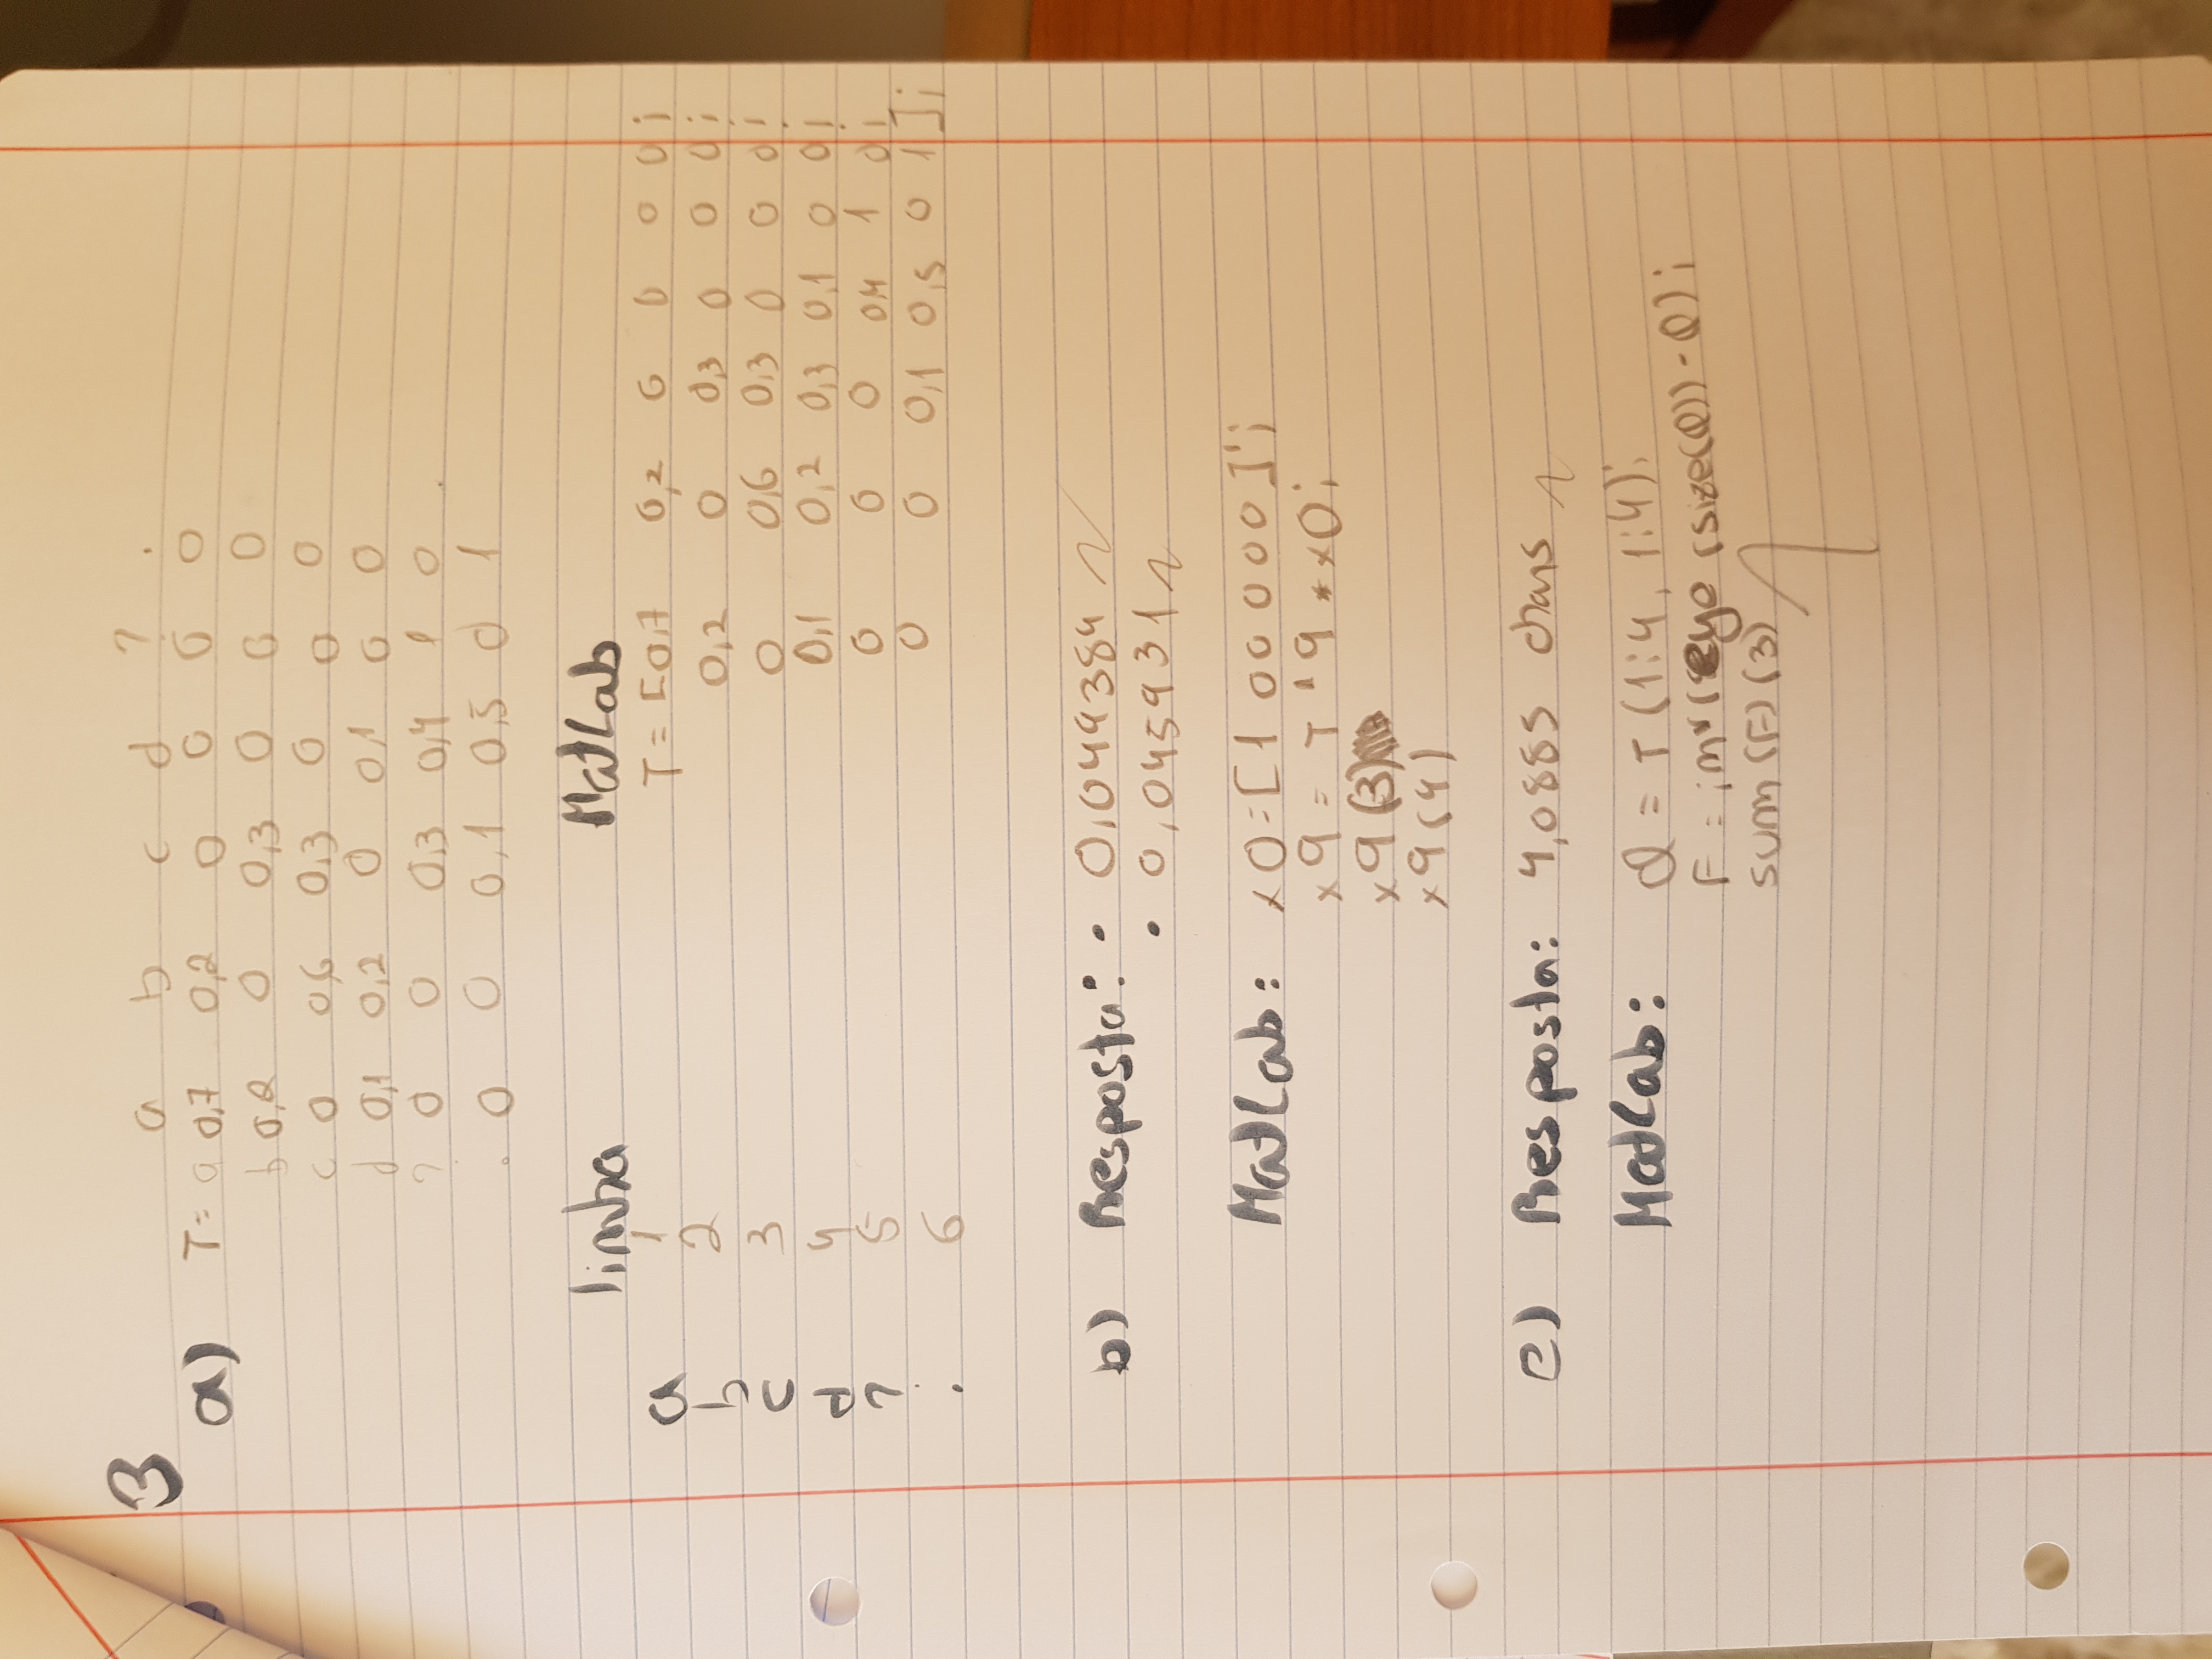 3
a b c d ? .
a) T= a 0,7 0,2 0 0 0 0
b 0,2 0 0,3 0 0 0
c 0 0,6 0,3 0 0 0
d 0,1 0,2 0 0,1 0 0
? 0 0 0,3 0,4 1 0
. 0 0 0,1 0,5 0 1
linha MatLab
a 1 T = [0,7 0,2 0 0 0 0;
b 2 0,2 0 0,3 0 0 0;
c 3 0 0,6 0,3 0 0 0;
d 4 0,1 0,2 0,3 0,1 0 0;
? 5 0 0 0 0,4 1 0;
. 6 0 0 0,1 0,5 0 1];
b) Resposta: • 0,049384
• 0,045931
MatLab: x0=[1 0 0 0 0 0]';
x9 = T^9 * x0;
x9(3)
x9(4)
c) Resposta: 4,0885 chars
MatLab: Q = T(1:4, 1:4);
F = inv(eye(size(Q)) - Q);
sum(F)(3)